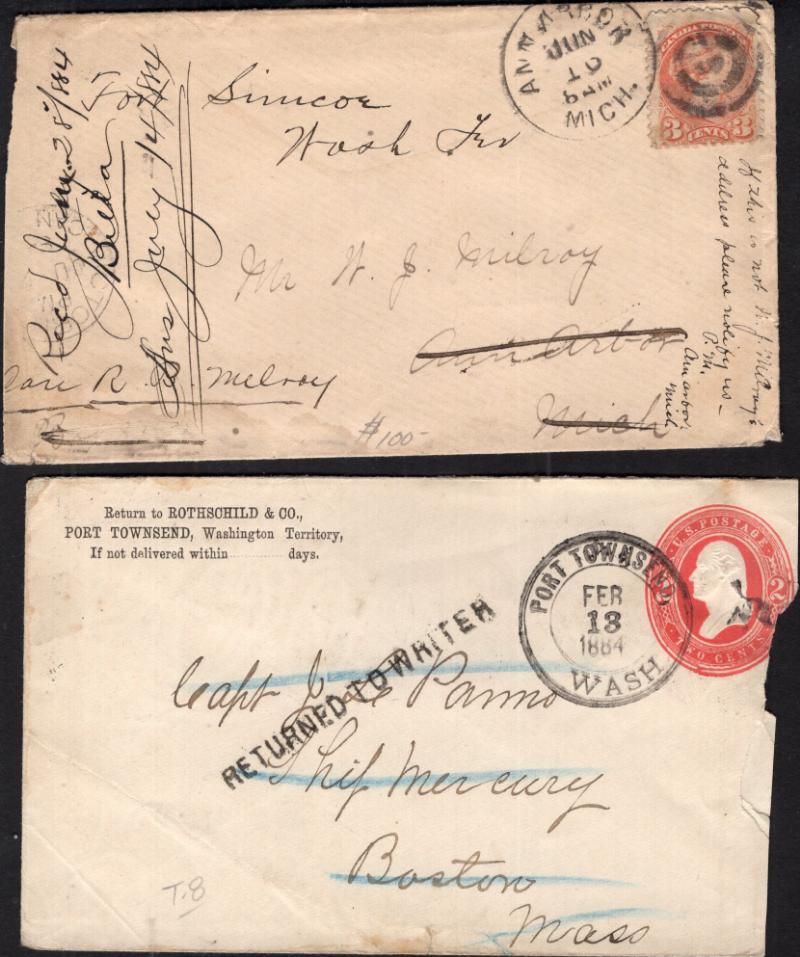 ANN ARBOR
JUN
10
MICH.
CANADA POSTAGE
3 CENTS 3
Simcoe
Wash Ter
Mr W. J. Milroy
Ann Arbor
Mich
Recd June 28th/84
Ans July 14/84
R. Melroy
$100-
If this is not W. J. Milroy's
address please notify us -
P.M.
Ann arbor
Mich
Return to ROTHSCHILD & CO.,
PORT TOWNSEND, Washington Territory,
If not delivered within days.
PORT TOWNSEND
FEB
13
1884
WASH
U.S. POSTAGE
2
TWO CENTS
RETURNED TO WRITER
Capt
Ship Mercury
Boston
Mass
T.8